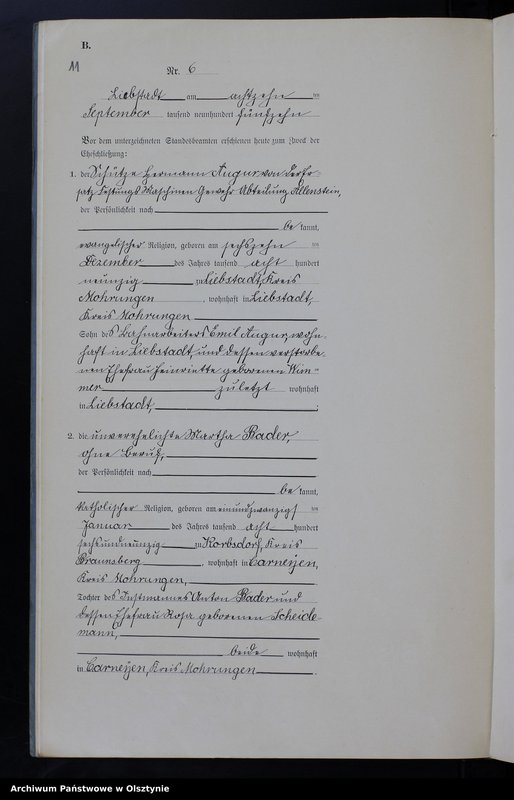 B.
11
Nr. 6
Liebstadt am achtzehn ten
September tausend neunhundert fünfzehn
Vor dem unterzeichneten Standesbeamten erschienen heute zum Zweck der
Eheschließung:
1. der Schütze Hermann August von der Er-
satz Festungs Maschinen Gewehr Abteilung Allenstein,
der Persönlichkeit nach
be kannt,
evangelischer Religion, geboren am sechszehn ten
Dezember des Jahres tausend acht hundert
neunzig zu Liebstadt, Kreis
Mohrungen, wohnhaft in Liebstadt,
Kreis Mohrungen
Sohn des Bahnarbeiters Emil August, wohn-
haft in Liebstadt, und dessen verstorbe-
nen Ehefrau Heinriette geborenen Wim-
mer zuletzt wohnhaft
in Liebstadt,
2. die unverehelichte Martha Bader,
ohne Beruf,
der Persönlichkeit nach
be kannt,
katholischer Religion, geboren am einundzwanzigs ten
Januar des Jahres tausend acht hundert
sechsundneunzig zu Korbsdorf, Kreis
Braunsberg, wohnhaft in Carneyen,
Kreis Mohrungen,
Tochter des Instmannes Anton Bader und
dessen Ehefrau Rosa geborenen Scheide-
mann,
beide wohnhaft
in Carneyen, Kreis Mohrungen.
Archiwum Państwowe w Olsztynie